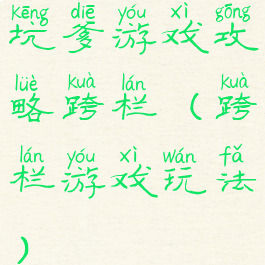 kēng diē yóu xì gōng
坑爹游戏攻
lüè kuà lán kuà
略跨栏（跨
lán yóu xì wán fǎ
栏游戏玩法
）